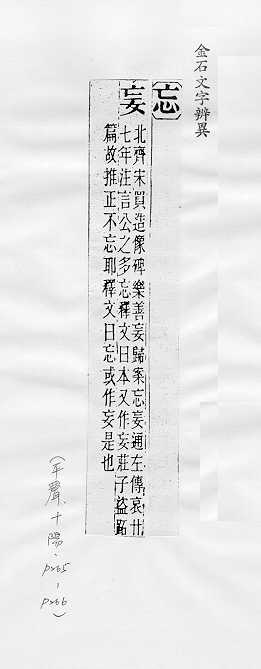 金石文字辨異
〔忘〕
妄
北齊宋買造像碑樂善妄歸案忘妄通左傳哀廿
七年注言公之多忘釋文曰本又作妄莊子盜跖
篇故推正不忘耶釋文曰忘或作妄是也
(平聲、十陽、
p265-
p266)